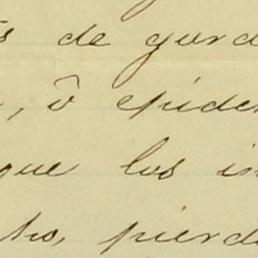 s de gurd
, ô epider
que los i
to, pierd